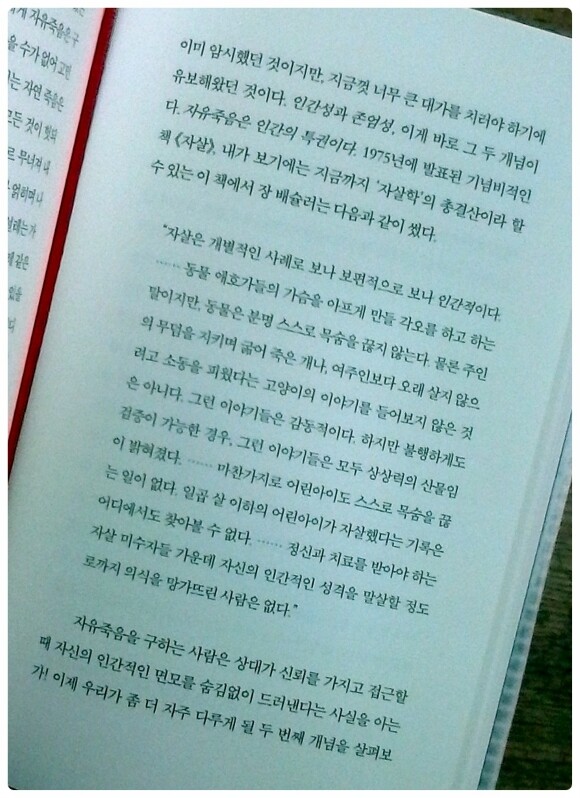 게 자유죽음은 구
을 수가 없어 고민
는 자연 죽음은
모든 것이 헛되
르 무너져 내
얽히며 나
같은
이미 암시했던 것이지만, 지금껏 너무 큰 대가를 치러야 하기에
유보해왔던 것이다. 인간성과 존엄성, 이게 바로 그 두 개념이
다. 자유죽음은 인간의 특권이다. 1975년에 발표된 기념비적인
책 《자살》, 내가 보기에는 지금까지 '자살학'의 총결산이라 할
수 있는 이 책에서 장 배슐러는 다음과 같이 썼다.
"자살은 개별적인 사례로 보나 보편적으로 보나 인간적이다.
…… 동물 애호가들의 가슴을 아프게 만들 각오를 하고 하는
말이지만, 동물은 분명 스스로 목숨을 끊지 않는다. 물론 주인
의 무덤을 지키며 굶어 죽은 개나, 여주인보다 오래 살지 않으
려고 소동을 피웠다는 고양이의 이야기를 들어보지 않은 것
은 아니다. 그런 이야기들은 감동적이다. 하지만 불행하게도
검증이 가능한 경우, 그런 이야기들은 모두 상상력의 산물임
이 밝혀졌다. …… 마찬가지로 어린아이도 스스로 목숨을 끊
는 일이 없다. 일곱 살 이하의 어린아이가 자살했다는 기록은
어디에서도 찾아볼 수 없다. …… 정신과 치료를 받아야 하는
자살 미수자들 가운데 자신의 인간적인 성격을 말살할 정도
로까지 의식을 망가뜨린 사람은 없다."
자유죽음을 구하는 사람은 상대가 신뢰를 가지고 접근할
때 자신의 인간적인 면모를 숨김없이 드러낸다는 사실을 아는
가! 이제 우리가 좀 더 자주 다루게 될 두 번째 개념을 살펴보